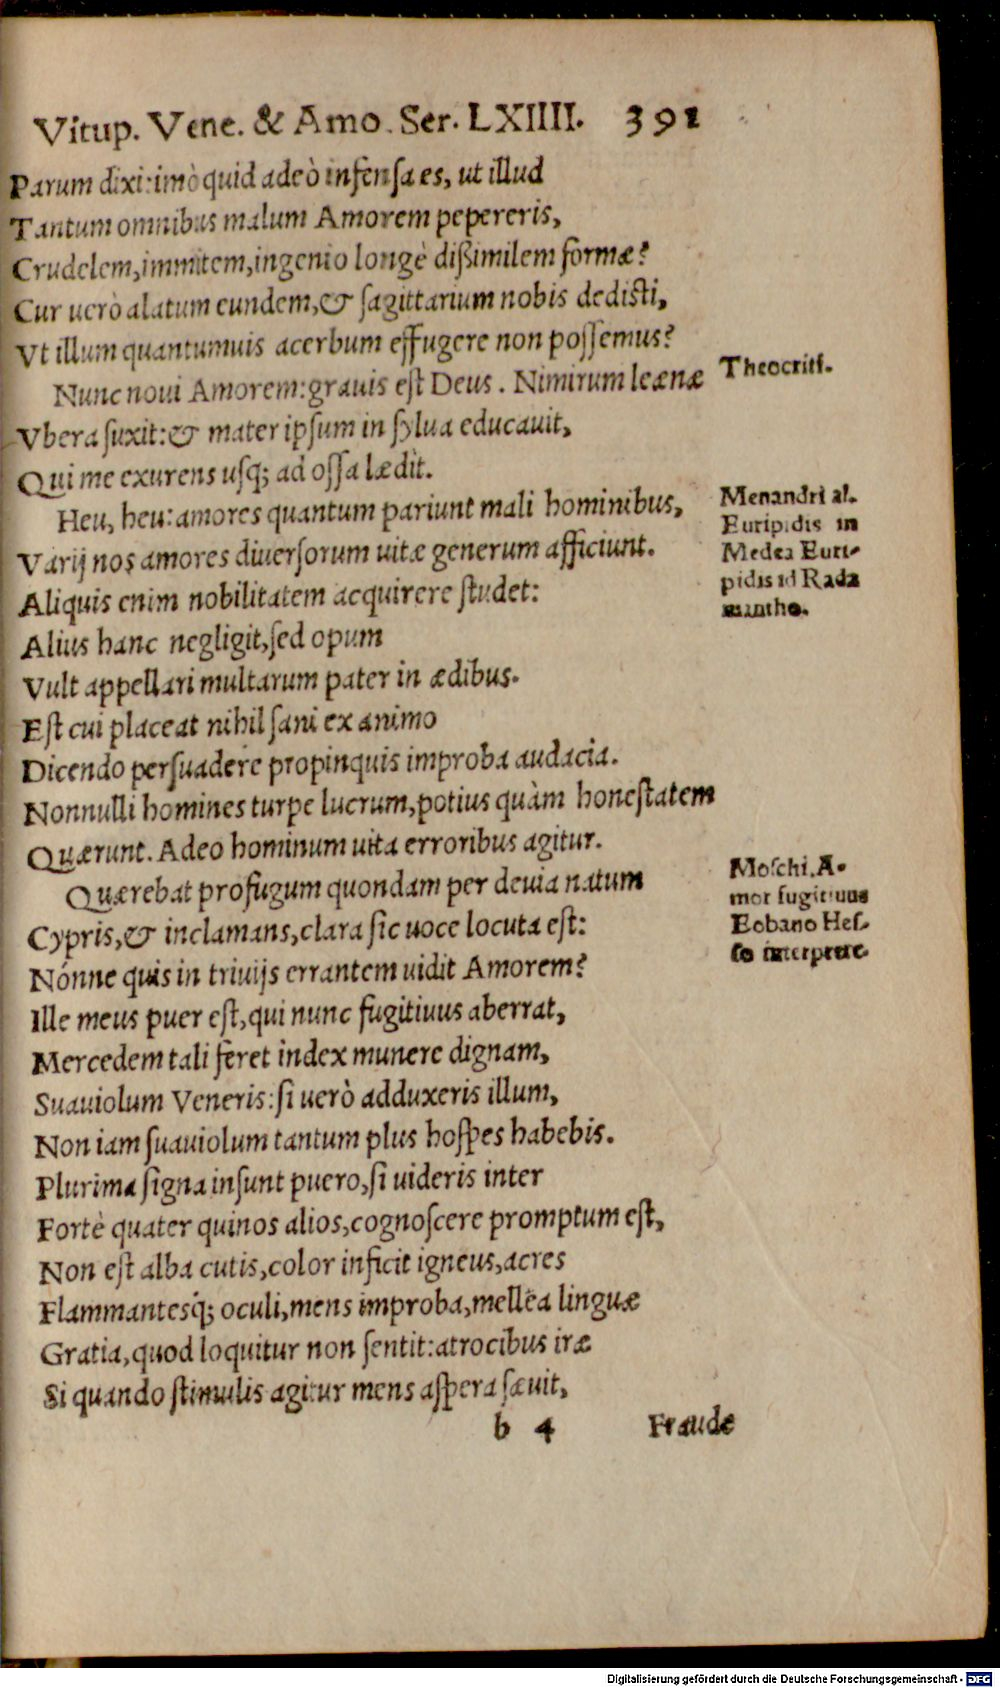 Vitup. Vene. & Amo. Ser. LXIIII. 391
Parum dixi: imò quid adeò infenſa es, ut illud
Tantum omnibus malum Amorem pepereris,
Crudelem, immitem, ingenio longè dißimilem formæ?
Cur uerò alatum eundem, & ſagittarium nobis dediſti,
Vt illum quantumuis acerbum effugere non poſſemus?
Nunc noui Amorem: grauis eſt Deus. Nimirum leænæ
Theocriti.
Vbera ſuxit: & mater ipſum in ſylua educauit,
Qui me exurens uſq; ad oſſa lædit.
Heu, heu: amores quantum pariunt mali hominibus,
Varij nos amores diuerſorum uitæ generum afficiunt.
Aliquis enim nobilitatem acquirere ſtudet:
Menandri al.
Euripidis in
Medea Euri-
pidis id Rada
mantho.
Alius hanc negligit, ſed opum
Vult appellari multarum pater in ædibus.
Eſt cui placeat nihil ſani ex animo
Dicendo perſuadere propinquis improba audacia.
Nonnulli homines turpe lucrum, potius quàm honeſtatem
Quærunt. Adeo hominum uita erroribus agitur.
Quærebat profugum quondam per deuia natum
Cypris, & inclamans, clara ſic uoce locuta eſt:
Moſchi, A-
mor fugitiuus
Eobano Heſ-
ſo interprete.
Nónne quis in triuijs errantem uidit Amorem?
Ille meus puer eſt, qui nunc fugitiuus aberrat,
Mercedem tali feret index munere dignam,
Suauiolum Veneris: ſi uerò adduxeris illum,
Non iam ſuauiolum tantum plus hoſpes habebis.
Plurima ſigna inſunt puero, ſi uideris inter
Fortè quater quinos alios, cognoſcere promptum eſt,
Non eſt alba cutis, color inficit igneus, acres
Flammantesq́; oculi, mens improba, mellea linguæ
Gratia, quod loquitur non ſentit: atrocibus iræ
Si quando ſtimulis agitur mens aſpera ſæuit,
b 4 Fraude
Digitalisierung gefördert durch die Deutsche Forschungsgemeinschaft - DFG